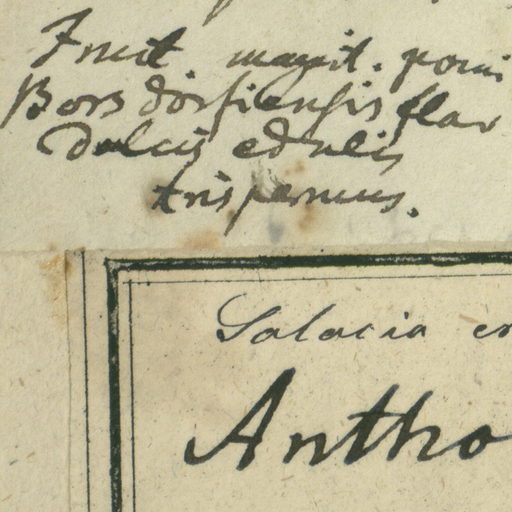 Fruct. magnit. pomi
Borsdorfiensis flav
dulcis edulis
trispermus.
Salacia er
Antho